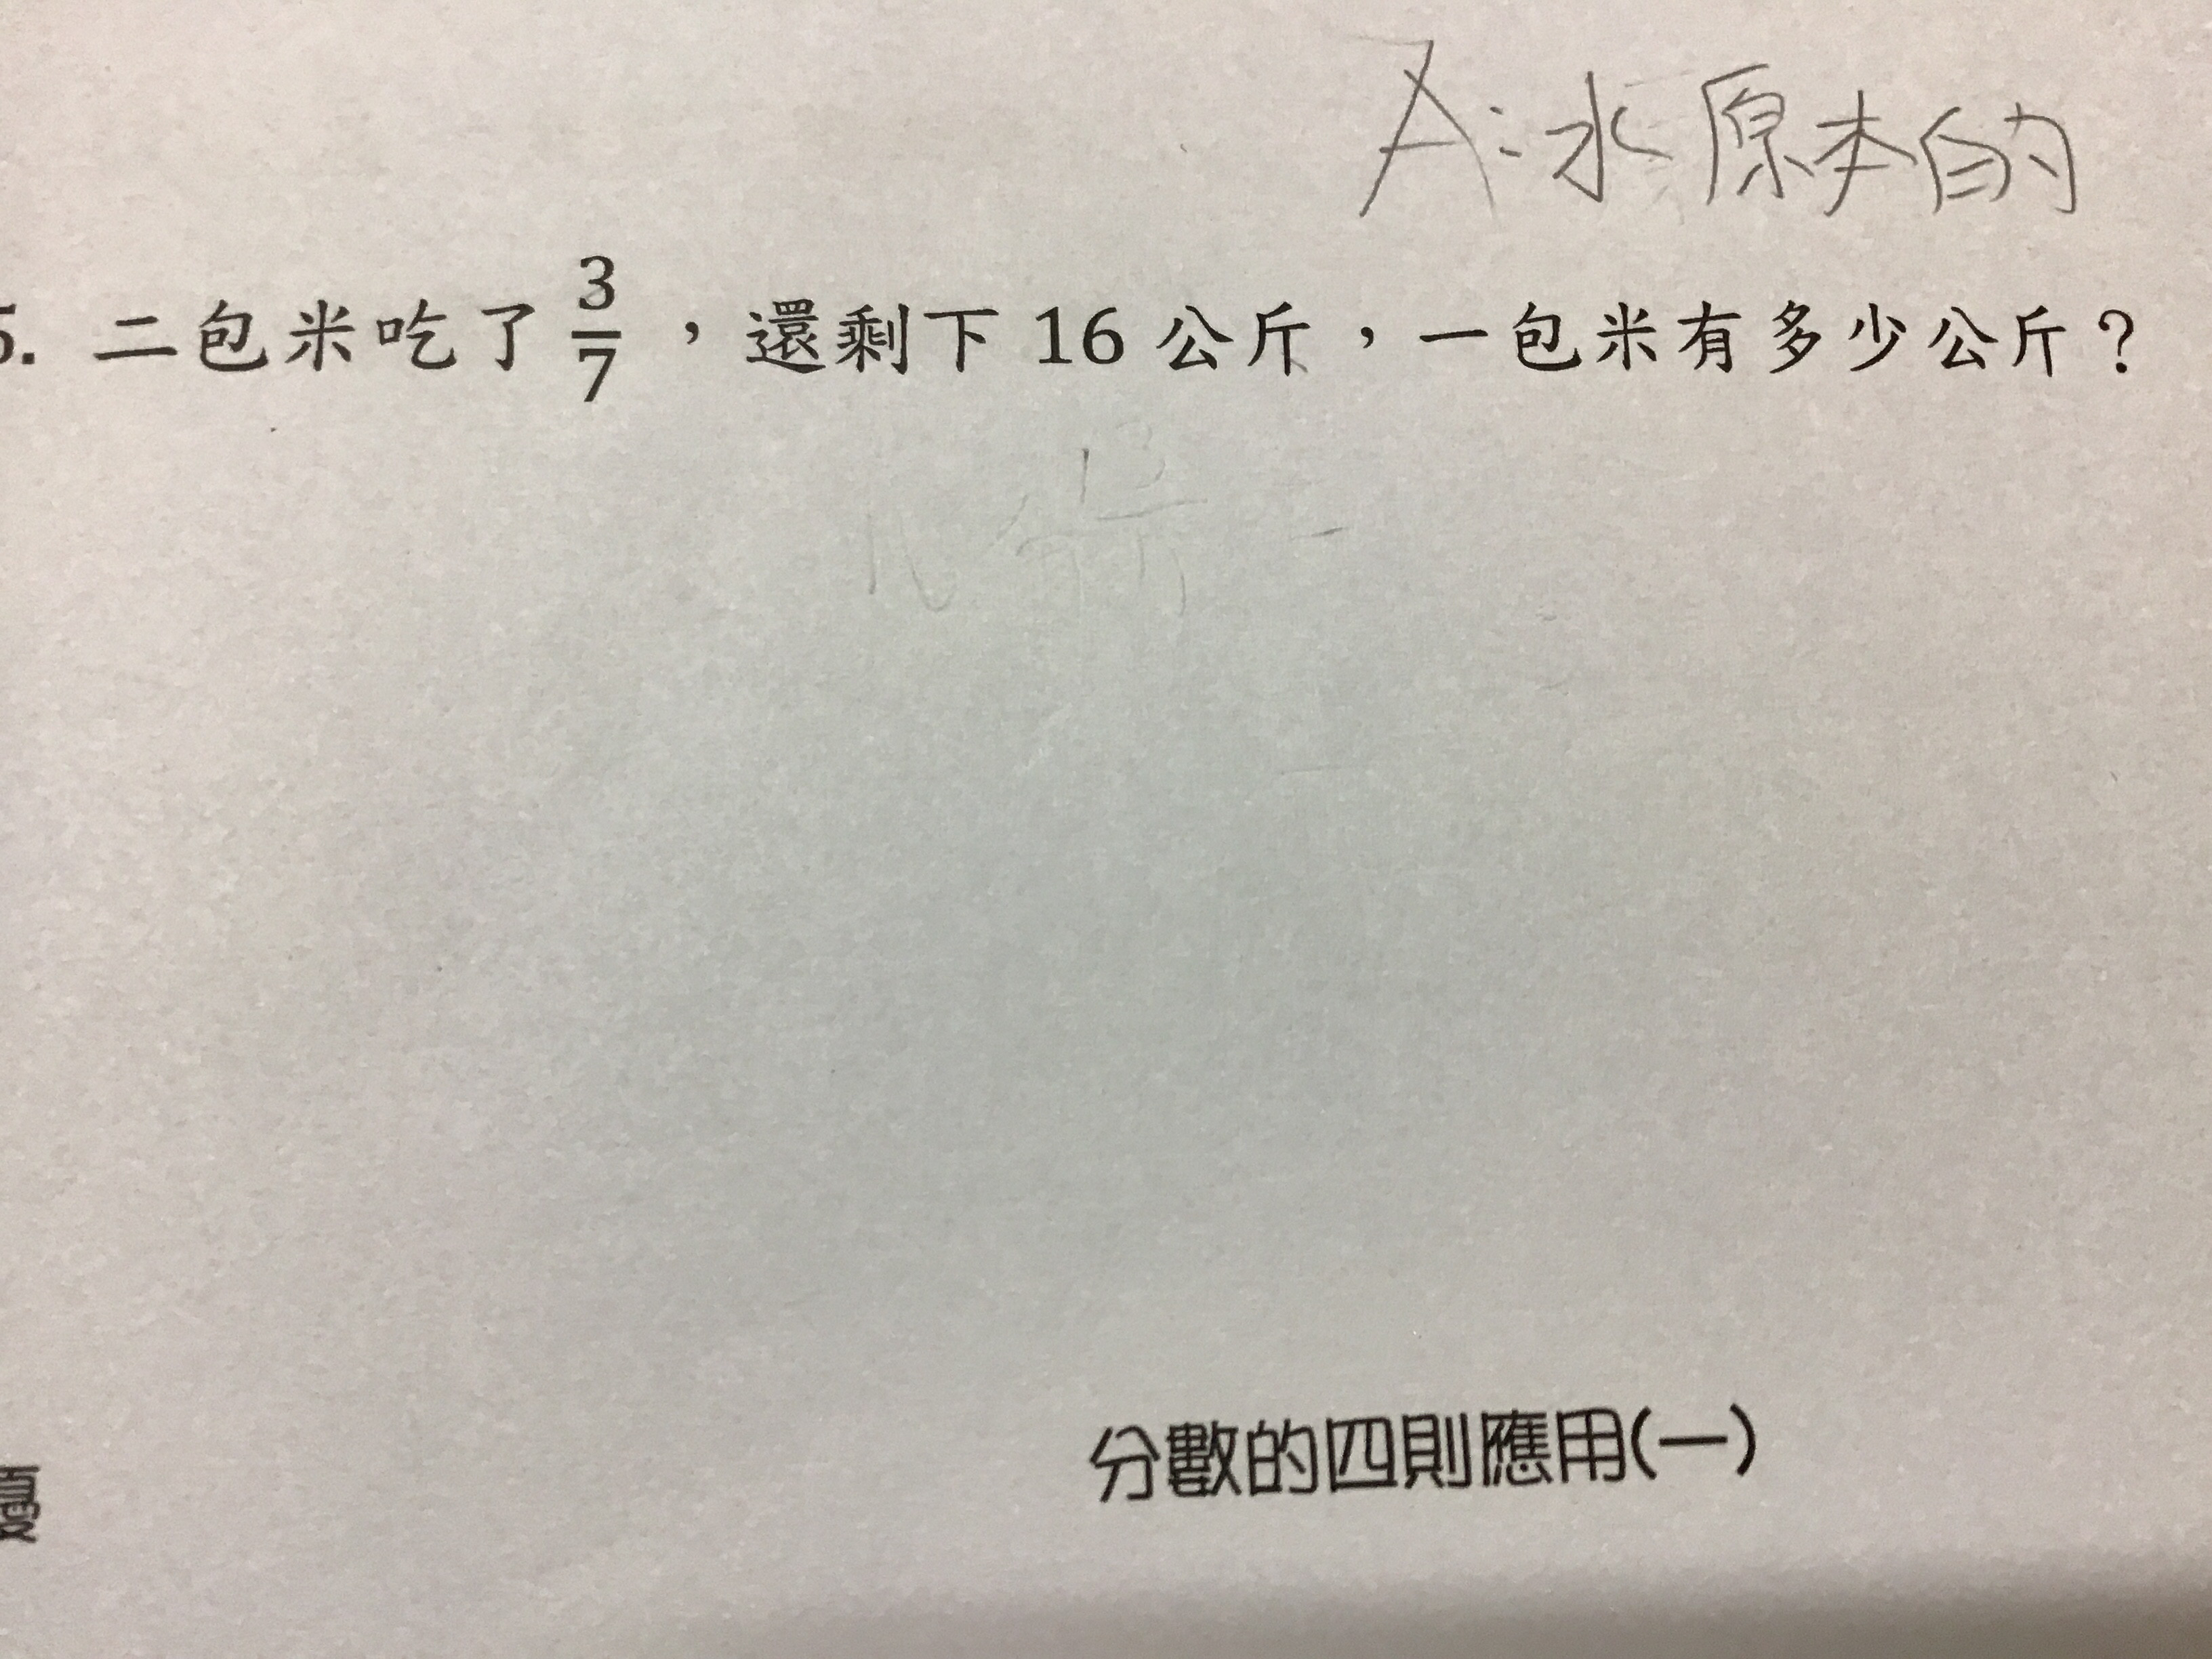 A:水原本的
5. 二包米吃了 3/7 ，還剩下 16 公斤，一包米有多少公斤？
分數的四則應用(一)